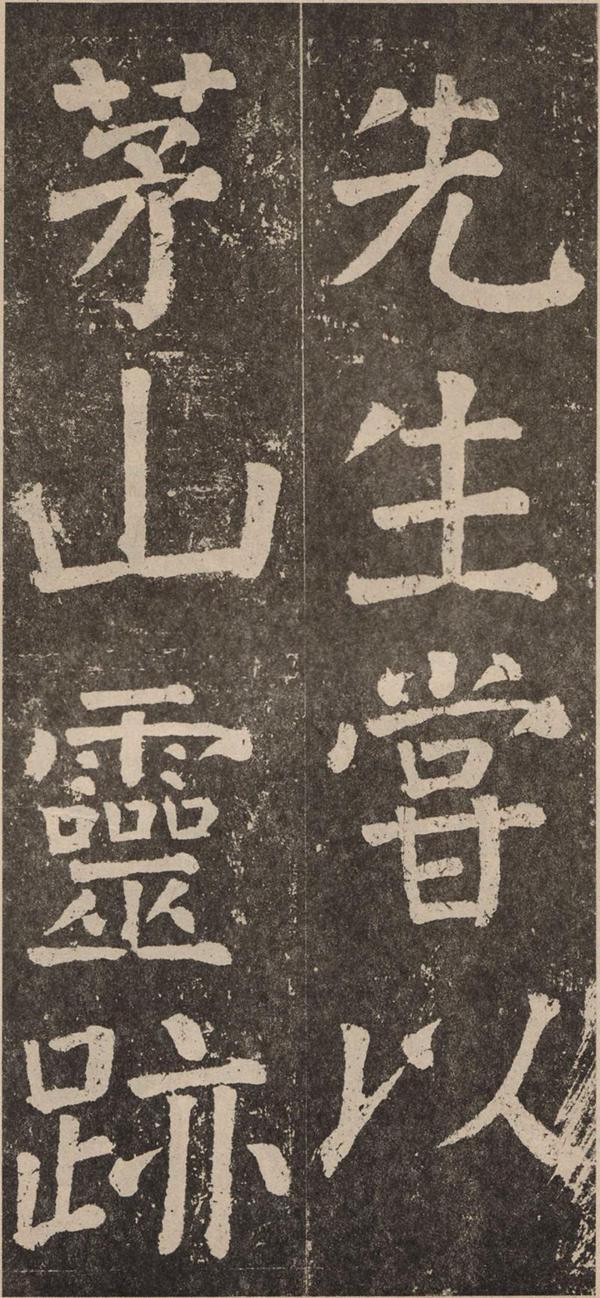 先生甞以
茅山靈跡